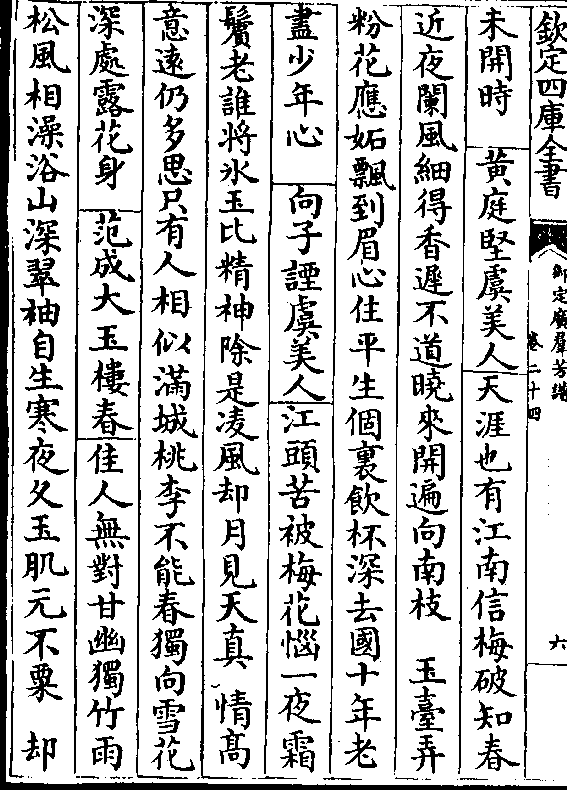 欽定四庫全書
御定廣羣芳譜
卷二十四
六
未開時 黄庭堅虞美人 天涯也有江南信梅破知春
近夜闌風細得香遲不道曉來開遍向南枝 玉臺弄
粉花應妬飄到眉心住平生個裏飲杯深去國十年老
盡少年心 向子諲虞美人 江頭苦被梅花惱一夜霜
鬢老誰將氷玉比精神除是凌風却月見天真 情髙
意逺仍多思只有人相似滿城桃李不能春獨向雪花
深處露花身 范成大玉樓春 佳人無對甘幽獨竹雨
松風相澡浴山深翠袖自生寒夜久玉肌元不粟 却